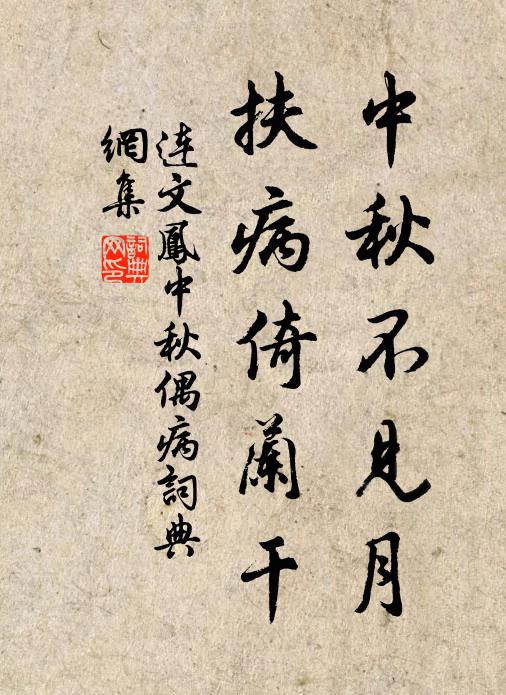 中秋不见月
扶病倚蘭干
连文鳳中秋偶病詞典
網集
詞典
网印